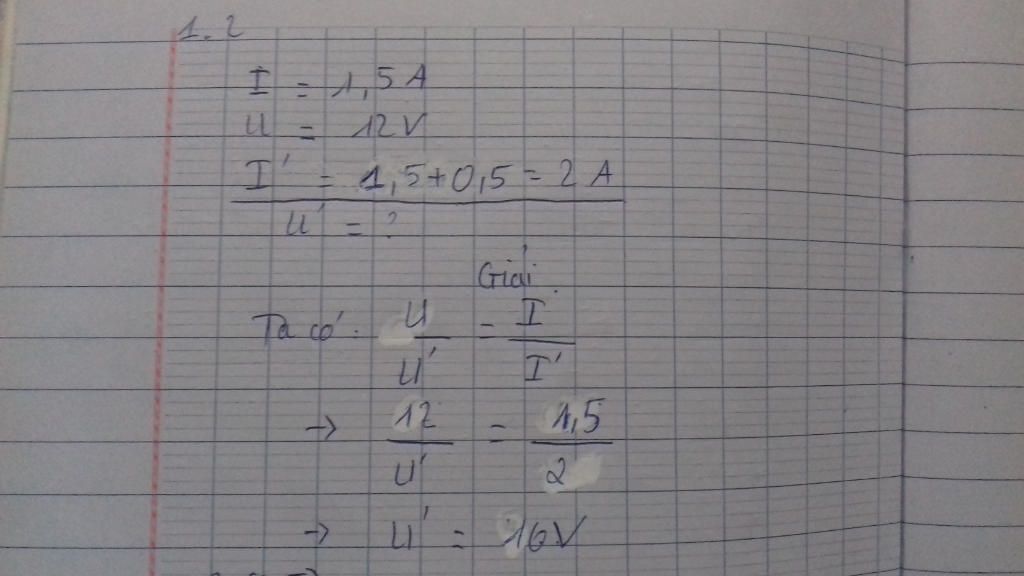 1.2
I = 1,5 A
U = 12V
I' = 1,5+0,5 = 2 A
U' = ?
Giải
Ta có: U/U' = I/I'
→ 12/U' = 1,5/2
→ U' = 16V